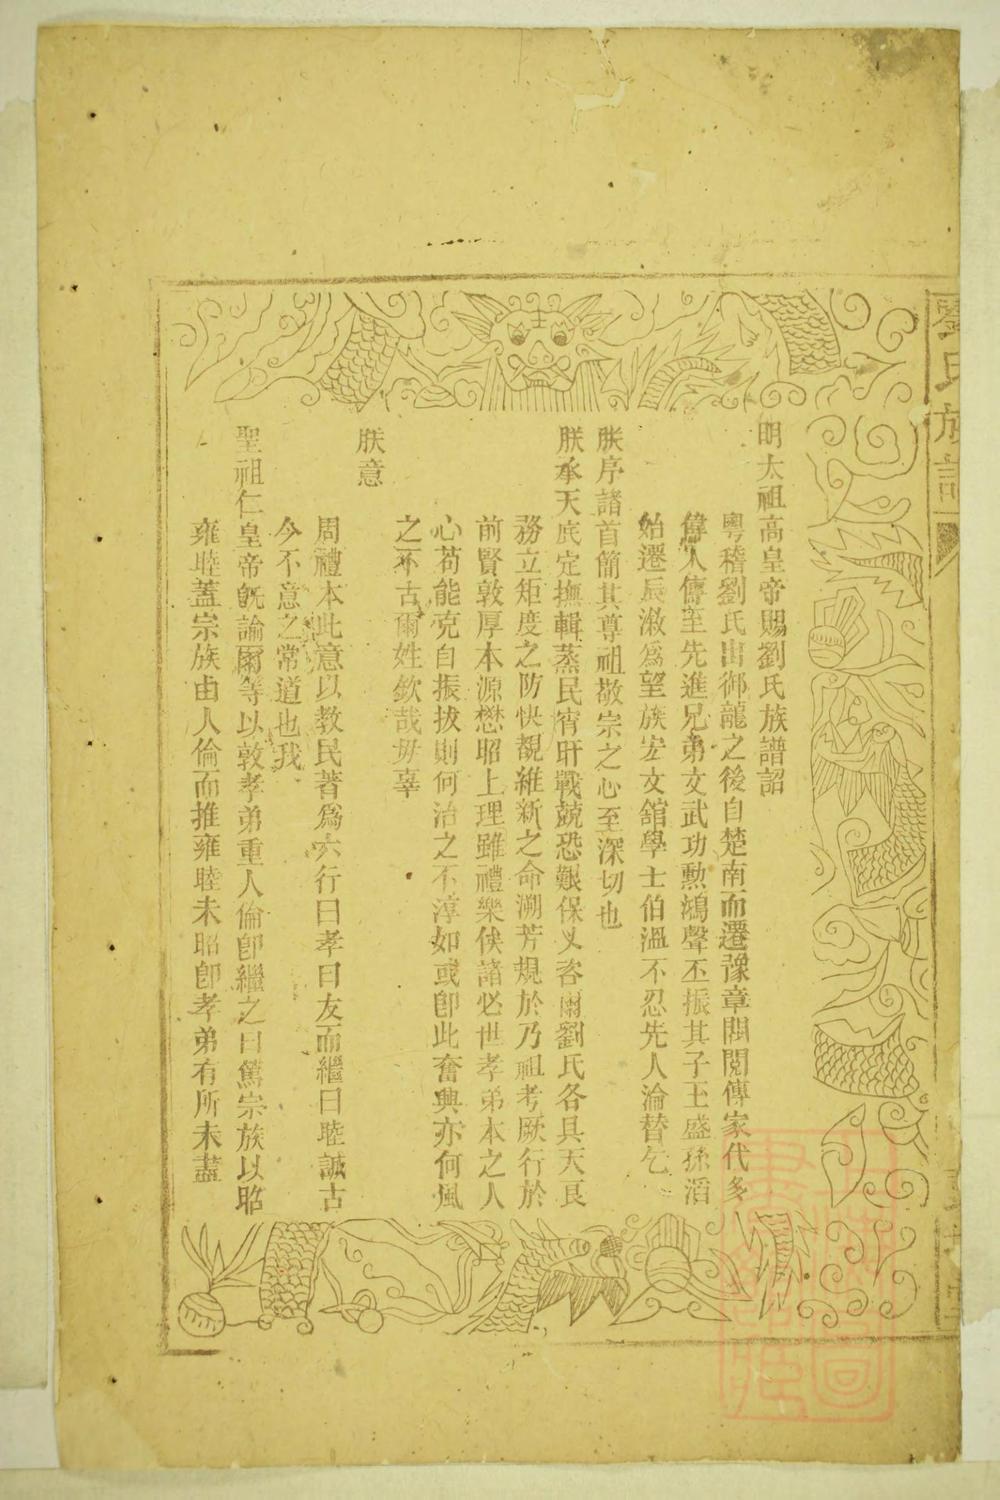 劉氏族譜
明太祖高皇帝賜劉氏族譜詔
粵稽劉氏出御龍之後自楚南而遷豫章閥閱傳家代多
偉人傳至先進兄弟文武功勲鴻聲丕振其子玉盛孫滔
始遷辰漵爲望族宏文舘學士伯溫不忍先人淪替乞
朕序諸首簡其尊祖敬宗之心至深切也
朕承天底定撫輯蒸民宵旰戰兢恐艱保乂咨爾劉氏各具天良
務立矩度之防快覩維新之命溯芳規於乃祖考厥行於
前賢敦厚本源懋昭上理雖禮樂俟諸必世孝弟本之人
心苟能克自振拔則何治之不淳如或卽此奮興亦何風
之不古爾姓欽哉毋辜
朕意
周禮本此意以教民著爲六行曰孝曰友而繼曰睦誠古
今不意之常道也我
聖祖仁皇帝旣論爾等以敦孝弟重人倫卽繼之曰篤宗族以昭
雍睦蓋宗族由人倫而推雍睦未昭卽孝弟有所未盡